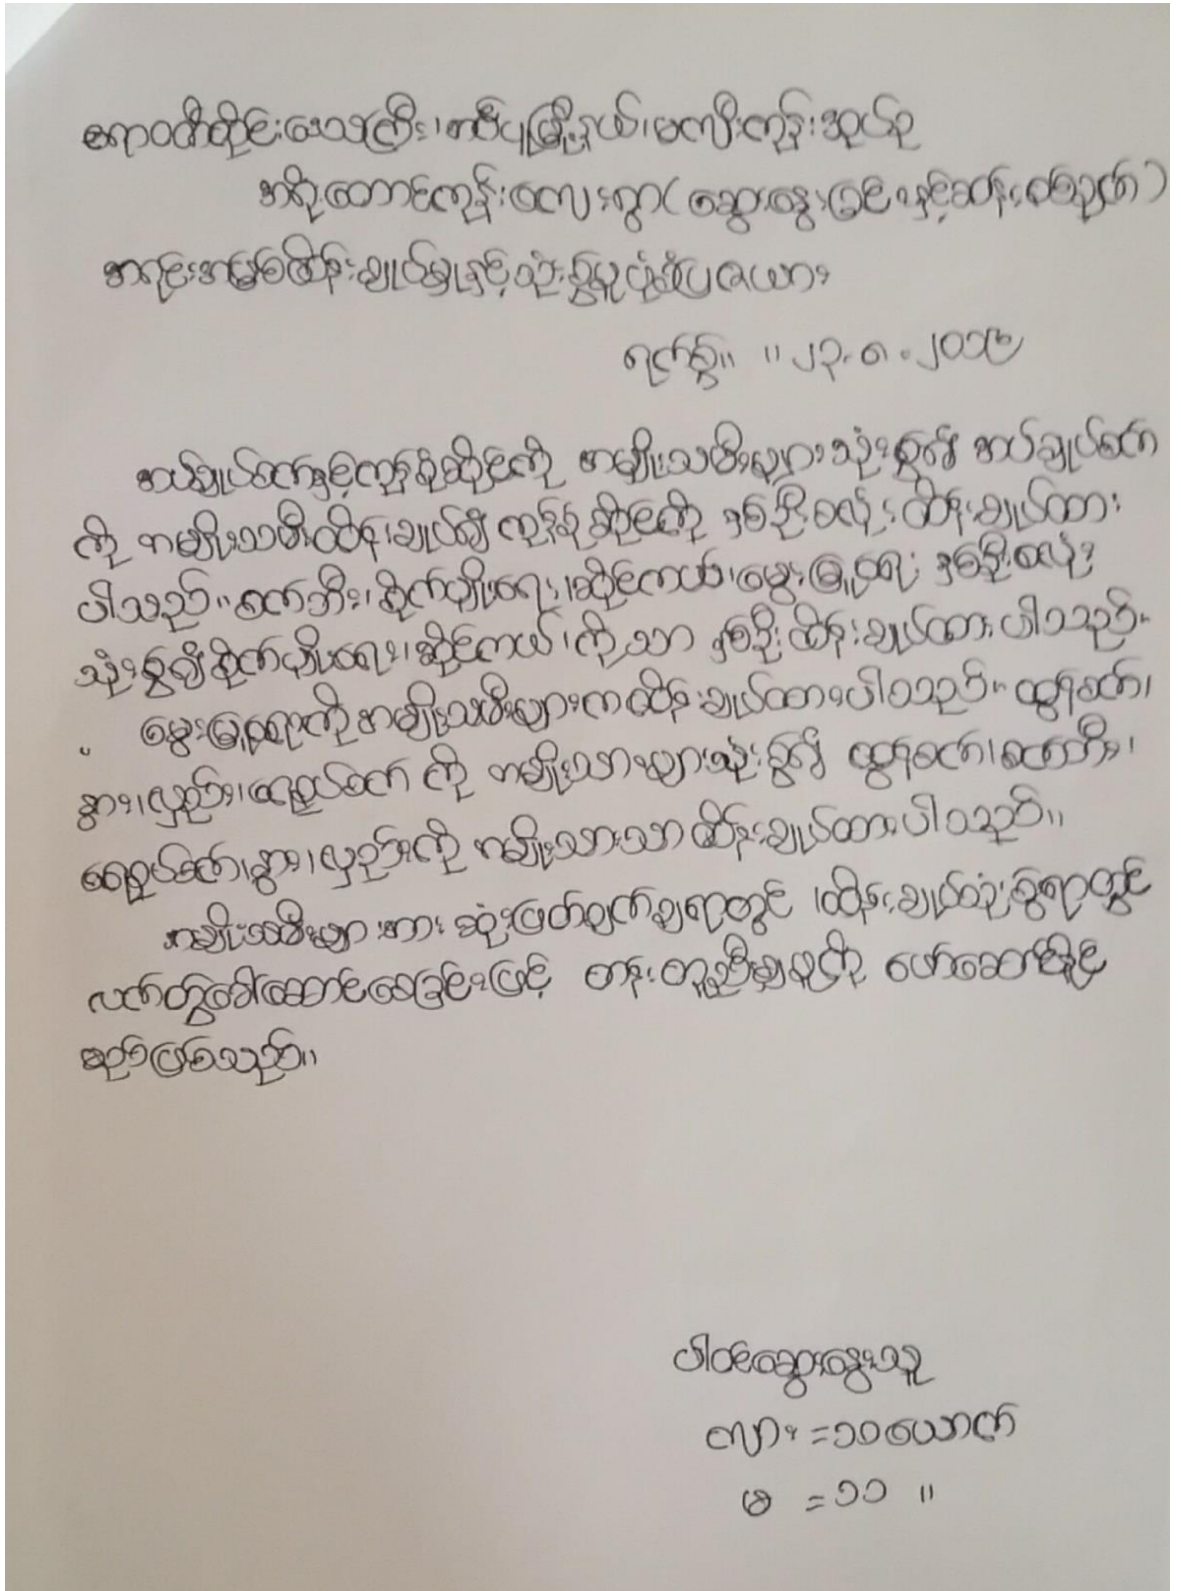 ဧရာဝတီတိုင်းဒေသကြီး၊ အင်္ပူမြို့နယ်၊ မကျီးကုန်းအုပ်စု
အရိုးတောင်ကုန်းလေးရွာ (ဆွေးနွေးခြင်းနှင့်ဆန်းစစ်ချက်)
အရင်းအမြစ်ထိန်းချုပ်မှုနှင့်သုံးစွဲမှုပုံစံပြဇယား
ရက်စွဲ။ ။ ၂၃.၈.၂၀၁၉
အပ်ချုပ်စက်နှင့်ကုန်စုံဆိုင်ကို အမျိုးသမီးများသုံးစွဲ၍ အပ်ချုပ်စက်
ကို အမျိုးသမီးထိန်းချုပ်၍ ကုန်စုံဆိုင်ကို နှစ်ဦးစလုံး ထိန်းချုပ်ထား
ပါသည်။ စက်ဘီး၊ စိုက်ပျိုးရေး၊ ဆိုင်ကယ်၊ မွေးမြူရေး နှစ်ဦးစလုံး
သုံးစွဲ၍ စိုက်ပျိုးရေး၊ ဆိုင်ကယ်၊ ကိုသာ နှစ်ဦးထိန်းချုပ်ထားပါသည်။
မွေးမြူရေးကို အမျိုးသမီးများကထိန်းချုပ်ထားပါသည်။ ထွန်စက်၊
နွား၊ လှည်း၊ ရေစုပ်စက် ကို အမျိုးသားများသုံးစွဲ၍ ထွန်စက်၊ စက်ဘီး၊
ရေစုပ်စက်၊ နွား၊ လှည်းကို အမျိုးသားသာ ထိန်းချုပ်ထားပါသည်။
အမျိုးသမီးများအား ဆုံးဖြတ်ချက်ချရာတွင် ၊ ထိန်းချုပ်သုံးစွဲရာတွင်
လက်တွဲခေါ်ဆောင်စေခြင်းဖြင့် တန်းတူညီမျှမှုကို ဖော်ဆောင်နိုင်
မည်ဖြစ်သည်။
ပါဝင်ဆွေးနွေးသူ
ကျား = ၁၀ ယောက်
မ = ၁၁ ။